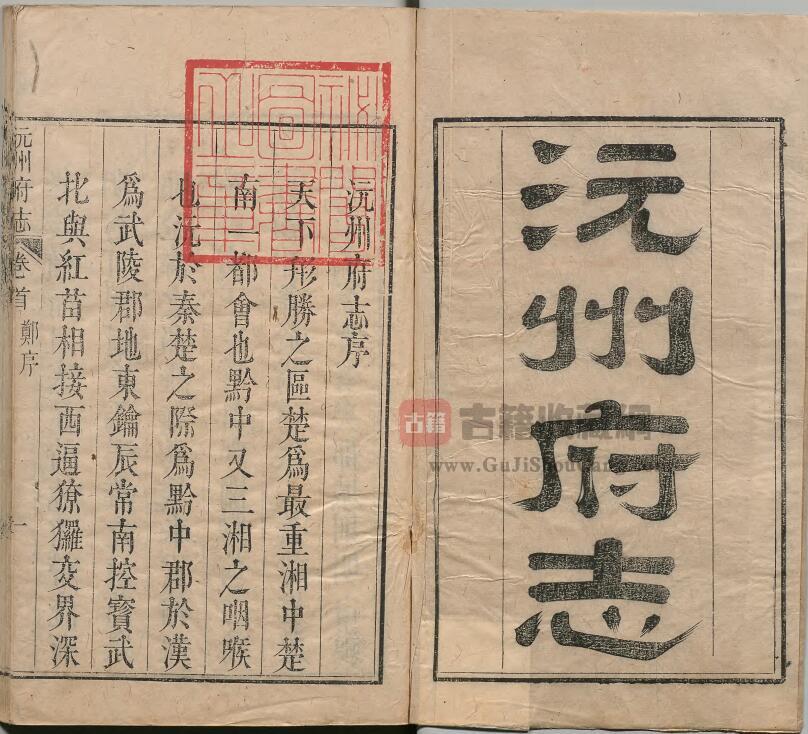 沅州府志
沅州府志序
天下形勝之區楚爲最重湘中楚
南一都會也黔中又三湘之咽喉
也沅於秦楚之際爲黔中郡於漢
爲武陵郡地東鑰辰常南控寶武
北與紅苗相接西逼獠玀交界深
沅州府志 卷首 鄭序 一
古籍 古籍收藏網
www.GuJiShouCang.